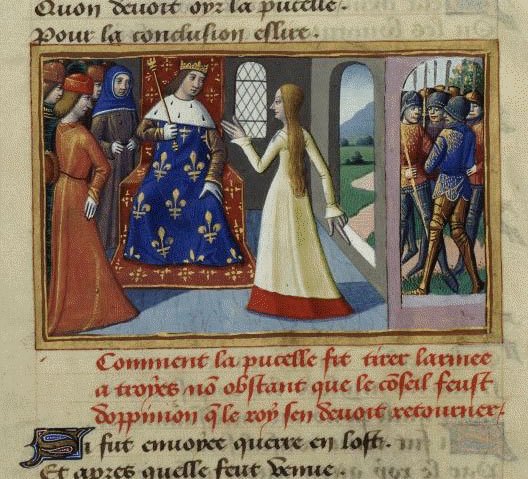 Quon devoit oyr la pucelle.
Pour la conclusion eslire.
Comment la pucelle fit tirer larmee
a troyes nõ obstant que le cõseil feust
doppinion q̃ le roy sen devoit retourner.
Si fut envoyee querre en lost.
Et apres quelle feut venue.